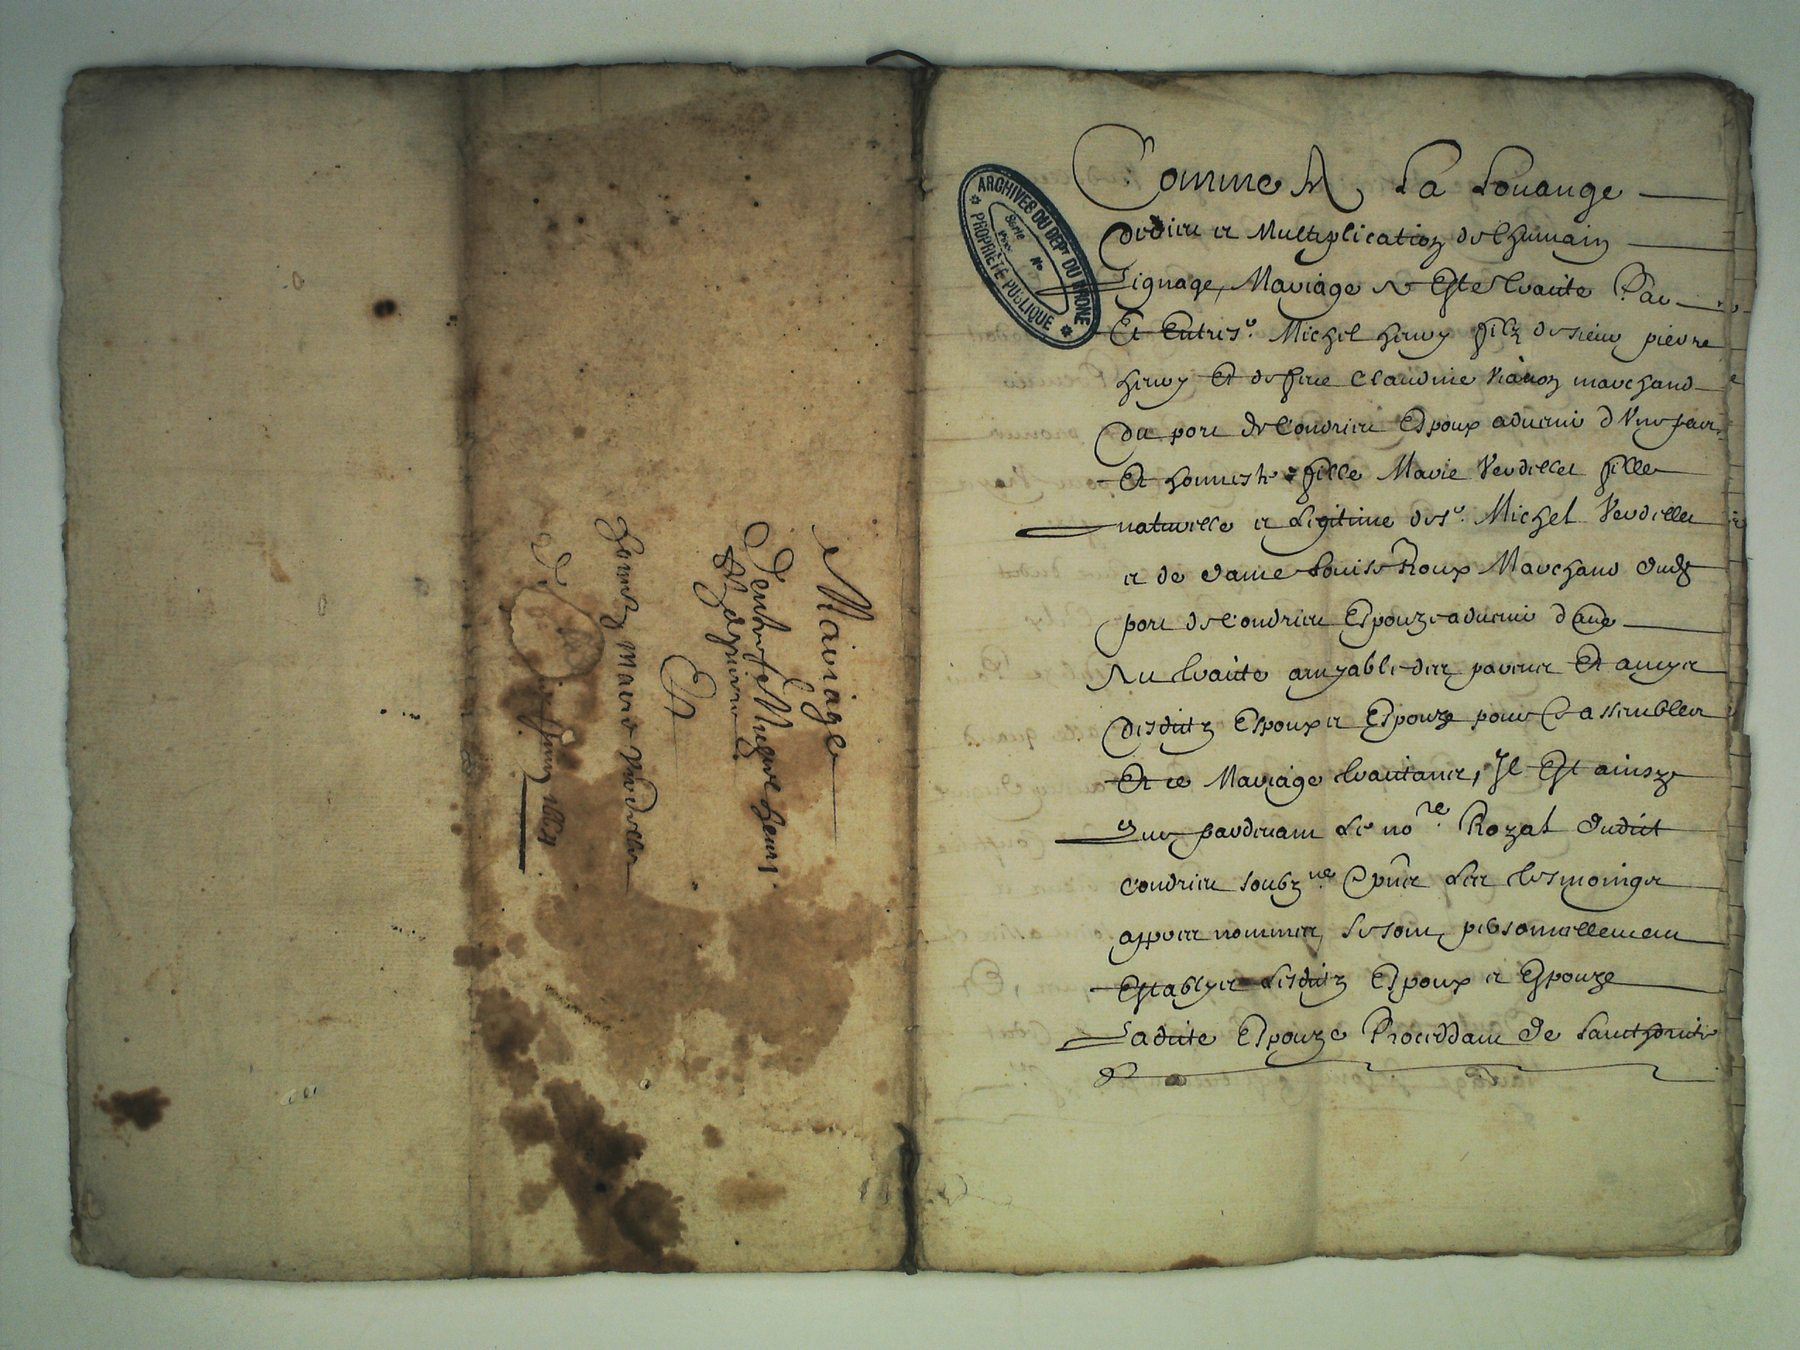 Mariage
D'entre sr Michel henry
Et
honneste Marie Verdellet
ARCHIVES DU DEPT DU RHONE
PROPRIÉTÉ PUBLIQUE
Série
No
Comme A La Louange
de dieu et Multiplication de lhumain
Lignage, Mariage Ae Esté traicte Par
Et Entre sr. Michel henry filz de sieur pierre
henry Et de feue Claudine marchand
du port de Condrieu Espoux advenir d'Vne part
Et honneste fille Marie Verdellet fille
naturelle et Legitime de sr. Michel Verdellet
et de dame Louise Roux Marchand dudt
port de Condrieu Espouze advenir d'aue
Au traicte amyable des parens Et amys
desdictz Espoux et Espouze pour Ce assemblés
Et ce Mariage traictant, Il Est ainsy
Que pardevant Le nore Royal dudict
Condrieu soubzne Et pnts Les tesmoings
appres nommes, se sont personnellement
Establys Lesdictz Espoux et Espouze
Ladicte Espouze Proceddant de Lauthorité